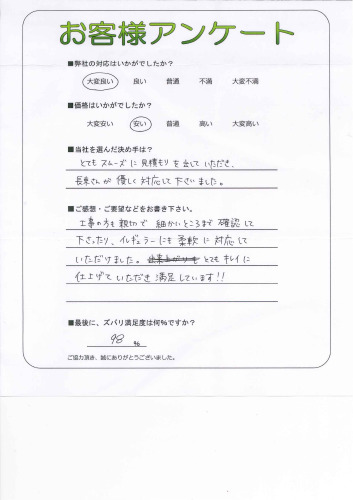 お客様アンケート
■弊社の対応はいかがでしたか？
大変良い 良い 普通 不満 大変不満
■価格はいかがでしたか？
大変安い 安い 普通 高い 大変高い
■当社を選んだ決め手は？
とてもスムーズに見積もりを出していただき、
長来さんが優しく対応して下さいました。
■ご感想・ご要望などをお書き下さい。
工事の方も親切で細かいところまで確認して
下さったり、イレギュラーにも柔軟に対応して
いただけました。とてもキレイに
仕上げていただき満足しています!!
■最後に、ズバリ満足度は何%ですか？
98 %
ご協力頂き、誠にありがとうございました。